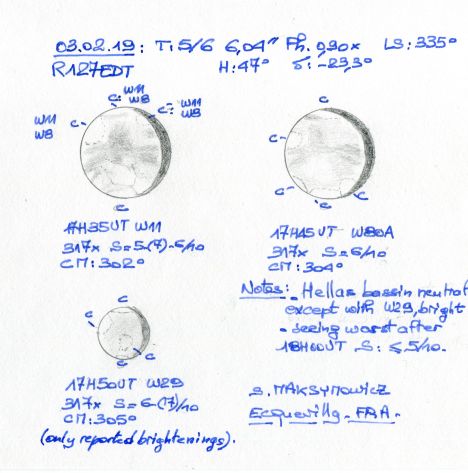 03.02.19 : T: 5/6 6,04" Ph. 0,90x LS: 335°
R127EDT H: 47° δ: -23,3°
C: W11 W8
C: W11 W8
W11 W8 C
C
17H35UT W11
317x S=5-(7)-6/10
CM: 302°
C
C
C
C
C
17H45UT W80A
317x S=6/10
CM: 304°
Notes: - Hellas bassin neutral
except with W29, bright
- seeing worst after
18H00UT S: ≤ 5/10.
C
C
C
C
17H50UT W29
317x S=6-(7)/10
CM: 305°
(only reported brightenings).
S. MAKSYMOWICZ
Ecquevilly - FRA -